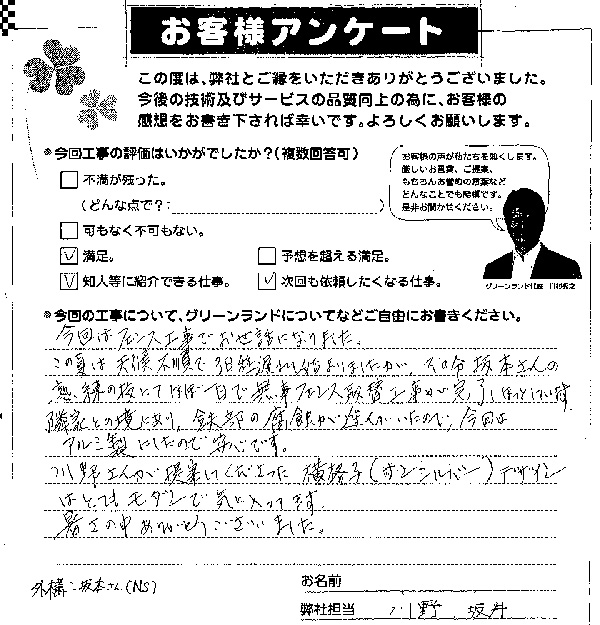 お客様アンケート
この度は、弊社とご縁をいただきありがとうございました。
今後の技術及びサービスの品質向上の為に、お客様の
感想をお書き下されば幸いです。よろしくお願いします。
*今回工事の評価はいかがでしたか?(複数回答可)
お客様の声が私たちを強くします。
厳しいお言葉、ご提案、
もちろんお誉めの言葉など
どんなことでも結構です。
是非お聞かせください。
不満が残った。
(どんな点で?: )
可もなく不可もない。
満足。
予想を超える満足。
知人等に紹介できる仕事。
次回も依頼したくなる仕事。
グリーンランド代表
*今回の工事について、グリーンランドについてなどご自由にお書きください。
今回はフェンス工事でお世話になりました。
この夏は天候不順で3日程遅れ始まりましたが、その分坂本さんの
熟練の技とてほぼ一日で無事フェンス取替工事が完了しほっとしています。
隣家との境にあり、鉄部の腐蝕が進んでいたので、今回は
アルミ製にしたので安心です。
川野さんが提案してくださった横格子(サンシルバー)デザイン
はとてもモダンで気に入ってます。
暑さの中ありがとうございました。
外構:坂本さん(NS)
お名前
弊社担当 川野 坂井